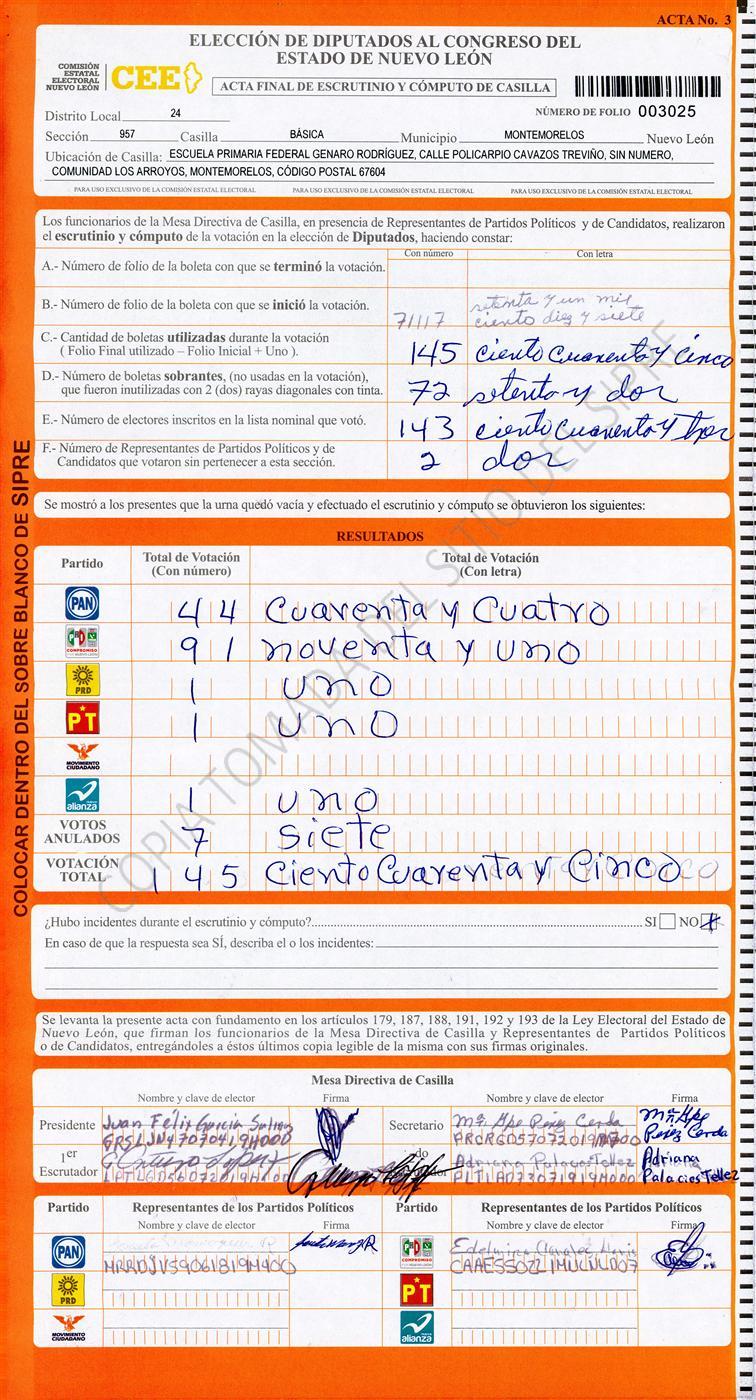 ACTA No. 3
ELECCIÓN DE DIPUTADOS AL CONGRESO DEL
ESTADO DE NUEVO LEÓN
COMISIÓN
ESTATAL
ELECTORAL
NUEVO LEÓN
CEE
ACTA FINAL DE ESCRUTINIO Y CÓMPUTO DE CASILLA
Distrito Local 24
NÚMERO DE FOLIO 003025
Sección 957 Casilla BÁSICA Municipio MONTEMORELOS Nuevo León
Ubicación de Casilla: ESCUELA PRIMARIA FEDERAL GENARO RODRÍGUEZ, CALLE POLICARPIO CAVAZOS TREVIÑO, SIN NUMERO,
COMUNIDAD LOS ARROYOS, MONTEMORELOS, CÓDIGO POSTAL 67604
PARA USO EXCLUSIVO DE LA COMISIÓN ESTATAL ELECTORAL PARA USO EXCLUSIVO DE LA COMISIÓN ESTATAL ELECTORAL PARA USO EXCLUSIVO DE LA COMISIÓN ESTATAL ELECTORAL
Los funcionarios de la Mesa Directiva de Casilla, en presencia de Representantes de Partidos Políticos y de Candidatos, realizaron
el escrutinio y cómputo de la votación en la elección de Diputados, haciendo constar:
Con número Con letra
A.- Número de folio de la boleta con que se terminó la votación.
B.- Número de folio de la boleta con que se inició la votación. 71117 setenta y un mil
ciento diez y siete
C.- Cantidad de boletas utilizadas durante la votación
( Folio Final utilizado – Folio Inicial + Uno ). 145 ciento cuarenta y cinco
D.- Número de boletas sobrantes, (no usadas en la votación),
que fueron inutilizadas con 2 (dos) rayas diagonales con tinta. 72 setenta y dos
E.- Número de electores inscritos en la lista nominal que votó. 143 ciento cuarenta y tres
F.- Número de Representantes de Partidos Políticos y de
Candidatos que votaron sin pertenecer a esta sección. 2 dos
Se mostró a los presentes que la urna quedó vacía y efectuado el escrutinio y cómputo se obtuvieron los siguientes:
RESULTADOS
Partido Total de Votación Total de Votación
(Con número) (Con letra)
PAN 44 cuarenta y cuatro
COMPROMISO 91 noventa y uno
PRD 1 uno
PT 1 uno
MOVIMIENTO
CIUDADANO
alianza 1 uno
VOTOS
ANULADOS 7 siete
VOTACIÓN
TOTAL 145 Ciento Cuarenta y Cinco
¿Hubo incidentes durante el escrutinio y cómputo? SI NO
En caso de que la respuesta sea SÍ, describa el o los incidentes:
Se levanta la presente acta con fundamento en los artículos 179, 187, 188, 191, 192 y 193 de la Ley Electoral del Estado de
Nuevo León, que firman los funcionarios de la Mesa Directiva de Casilla y Representantes de Partidos Políticos
o de Candidatos, entregándoles a éstos últimos copia legible de la misma con sus firmas originales.
Mesa Directiva de Casilla
Nombre y clave de elector Firma Nombre y clave de elector Firma
Presidente Juan Félix García Secretario Mª Gpe Pérez Cerda Mª Gpe
Pérez Cerda
1er
Escrutador Adriana Palacios Tellez Adriana
Palacios Tellez
Partido Representantes de los Partidos Políticos Partido Representantes de los Partidos Políticos
Nombre y clave de elector Firma Nombre y clave de elector Firma
PAN COMPROMISO
PRD PT
MOVIMIENTO
CIUDADANO alianza
COLOCAR DENTRO DEL SOBRE BLANCO DE SIPRE
COPIA TOMADA DEL SITIO DEL SIPRE